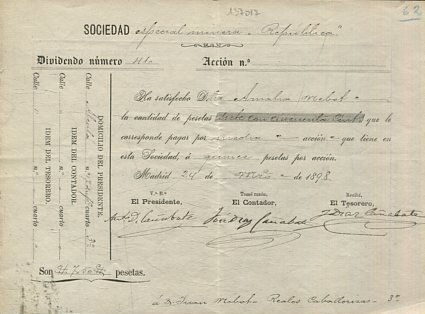 137017
62
SOCIEDAD especial minera "República"
Dividendo número 44 Acción n.º
Ha satisfecho D.ña Amalia Mebot
la cantidad de pesetas siete con cincuenta cents que le
corresponde pagar por media acción que tiene en
esta Sociedad, á quince pesetas por acción.
Madrid 24 de de 1898.
V.º B.º
El Presidente,
Tomé razón,
El Contador,
Recibí,
El Tesorero,
DOMICILIO DEL PRESIDENTE.
Calle n.º cuarto 3º
IDEM DEL CONTADOR.
Calle n.º cuarto
IDEM DEL TESORERO.
Calle n.º cuarto
Son pesetas.
á D. Juan Mebot Reales Caballerizas - 3º